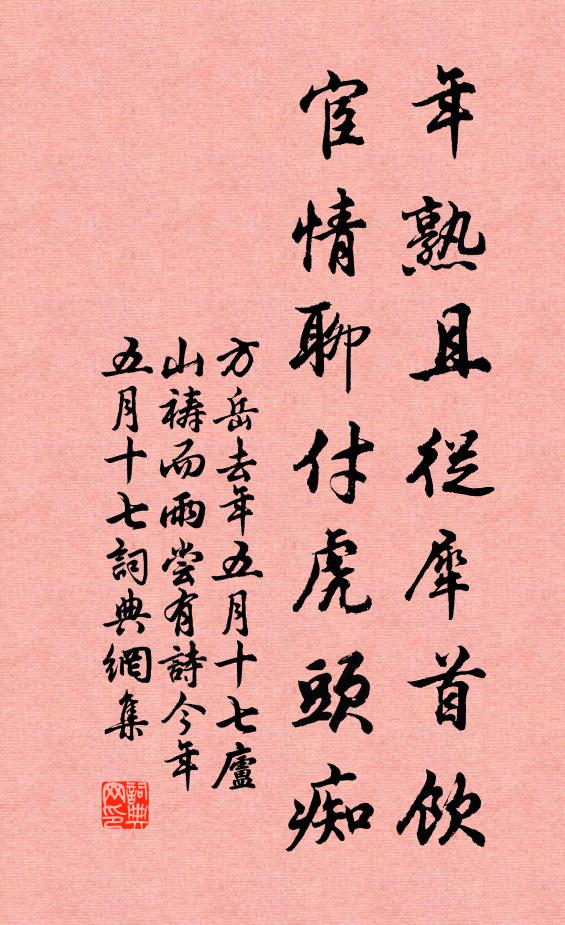 年熟且從犀首飲
宦情聊付虎頭痴
方岳去年五月十七廬
山禱而雨嘗有詩今年
五月十七詞典網集
詞典
网印